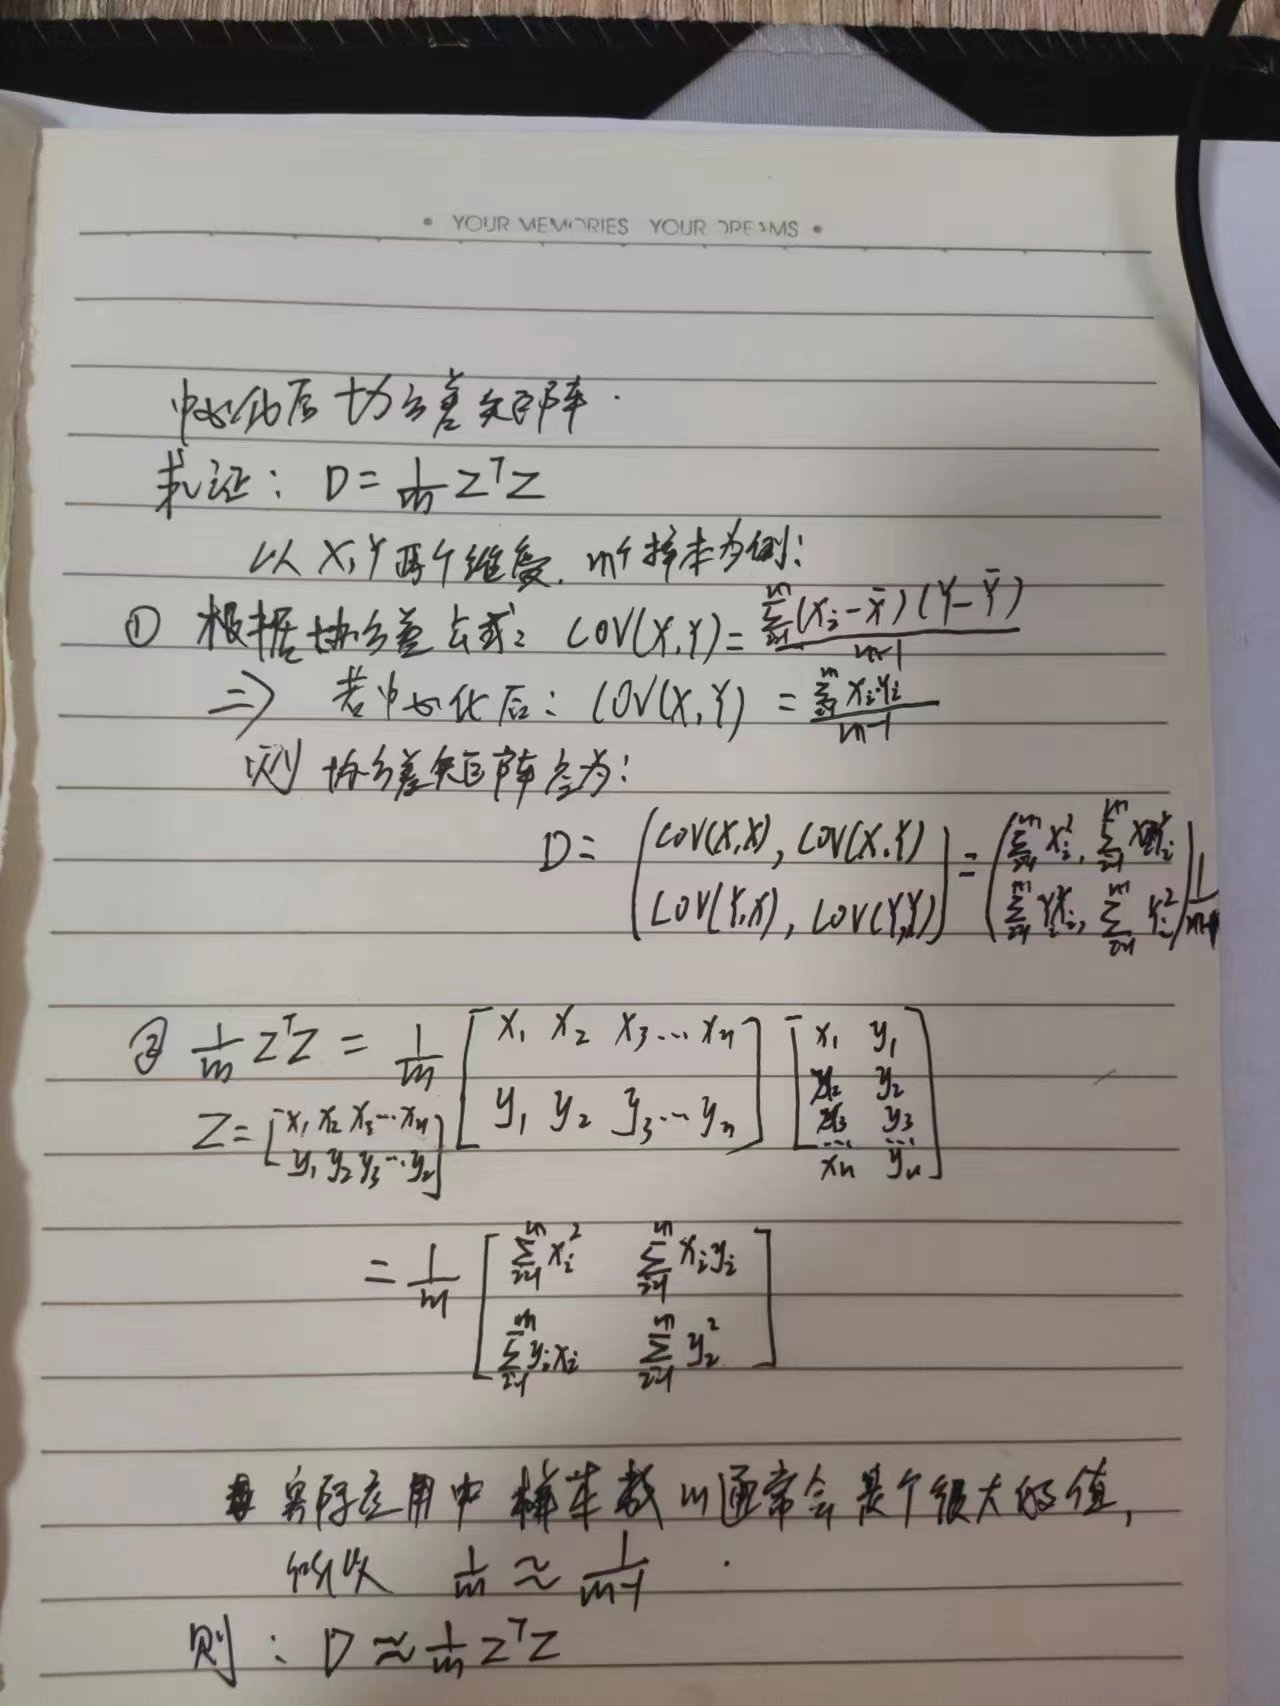 • YOUR MEMORIES YOUR DREAMS •
中心化后协方差矩阵.
求证: D = 1/m ZᵀZ
以 X,Y 两个维度. m个样本为例:
① 根据协方差公式: COV(X,Y) = ∑ᵢ₌₁ᵐ(Xᵢ-X̄)(Y-Ȳ) / m-1
⇒ 若中心化后: COV(X,Y) = ∑ᵢ₌₁ᵐ Xᵢ·Yᵢ / m-1
则 协方差矩阵为:
D = (COV(X,X), COV(X,Y) = (∑ᵢ₌₁ᵐ Xᵢ², ∑ᵢ₌₁ᵐ XᵢYᵢ
COV(Y,X), COV(Y,Y)) ∑ᵢ₌₁ᵐ YᵢXᵢ, ∑ᵢ₌₁ᵐ Yᵢ²) 1/m-1
② 1/m ZᵀZ = 1/m [x₁ x₂ x₃ ... xₙ [x₁ y₁
y₁ y₂ y₃ ... yₙ] x₂ y₂
Z = [x₁ x₂ x₃ ... xₙ x₃ y₃
y₁ y₂ y₃ ... y₂] ... ...
xₙ yₙ]
= 1/m [∑ᵢ₌₁ᵐ xᵢ² ∑ᵢ₌₁ᵐ xᵢyᵢ
∑ᵢ₌₁ᵐ yᵢxᵢ ∑ᵢ₌₁ᵐ y₂²]
实际应用中样本数 m 通常会是个很大的值,
所以 1/m ≈ 1/m-1
则: D ≈ 1/m ZᵀZ